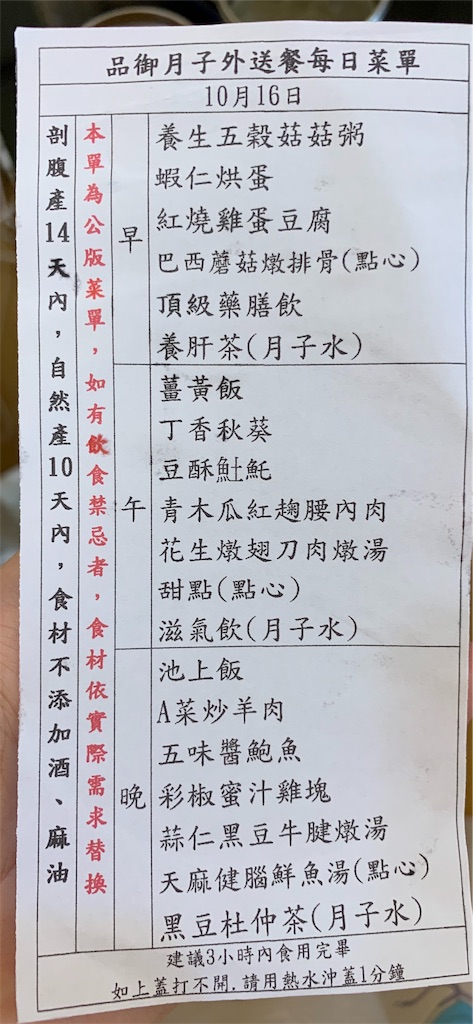 品御月子外送餐每日菜單
10月16日
剖腹產14天內，自然產10天內，食材不添加酒、麻油
本單為公版菜單，如有飲食禁忌者，食材依實際需求替換
早
養生五穀菇菇粥
蝦仁烘蛋
紅燒雞蛋豆腐
巴西蘑菇燉排骨(點心)
頂級藥膳飲
養肝茶(月子水)
午
薑黃飯
丁香秋葵
豆酥魟魠
青木瓜紅趜腰內肉
花生燉翅刀肉燉湯
甜點(點心)
滋氣飲(月子水)
晚
池上飯
A菜炒羊肉
五味醬鮑魚
彩椒蜜汁雞塊
蒜仁黑豆牛腱燉湯
天麻健腦鮮魚湯(點心)
黑豆杜仲茶(月子水)
建議3小時內食用完畢
如上蓋打不開.請用熱水沖蓋1分鐘